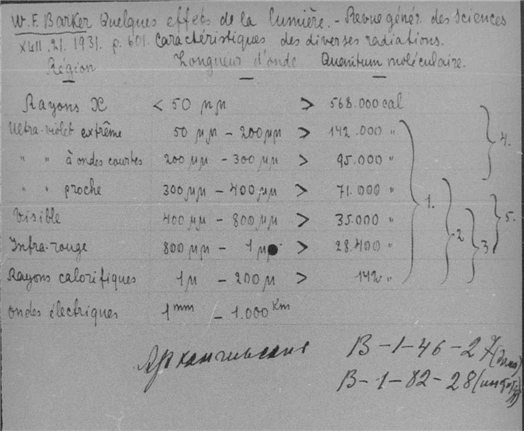 W. F. Barker Quelques effets de la lumière. - Revue génér. des Sciences
XLII. 21. 1931. p. 601. Caractéristiques des diverses radiations.
Région Longueur d'onde Quantum moléculaire.
Rayons X < 50 μμ > 568.000 cal
Ultra-violet extrême 50 μμ - 200 μμ > 142.000 "
" " à ondes courtes 200 μμ - 300 μμ > 95.000 " 4.
" " proche 300 μμ - 400 μμ > 71.000 " 1.
Visible 400 μμ - 800 μμ > 35.000 " 5.
Infra-rouge 800 μμ - 1 μ > 28.400 " 2 3
Rayons calorifiques 1 μ - 200 μ > 142 "
ondes électriques 1 mm - 1.000 Km
B-1-46-27
B-1-82-28